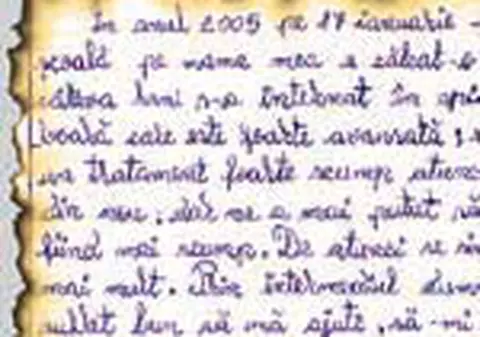 În anul 2005 pe 17 ianuarie -
școală pe mama mea a călcat-o
câteva luni s-a internat în
boală care este foarte avansată ,
un tratament foarte scump atunci
din nou , dar nu a mai putut să
fiind mai scump. De atunci se
mai mult. Prin intermediul
suflet bun să mă ajute , să -mi